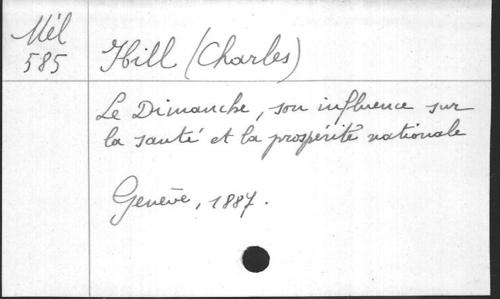 Mél
585
Hill (Charles)
Le Dimanche, son influence sur
la santé et la prospérité nationale
Genève, 1887.